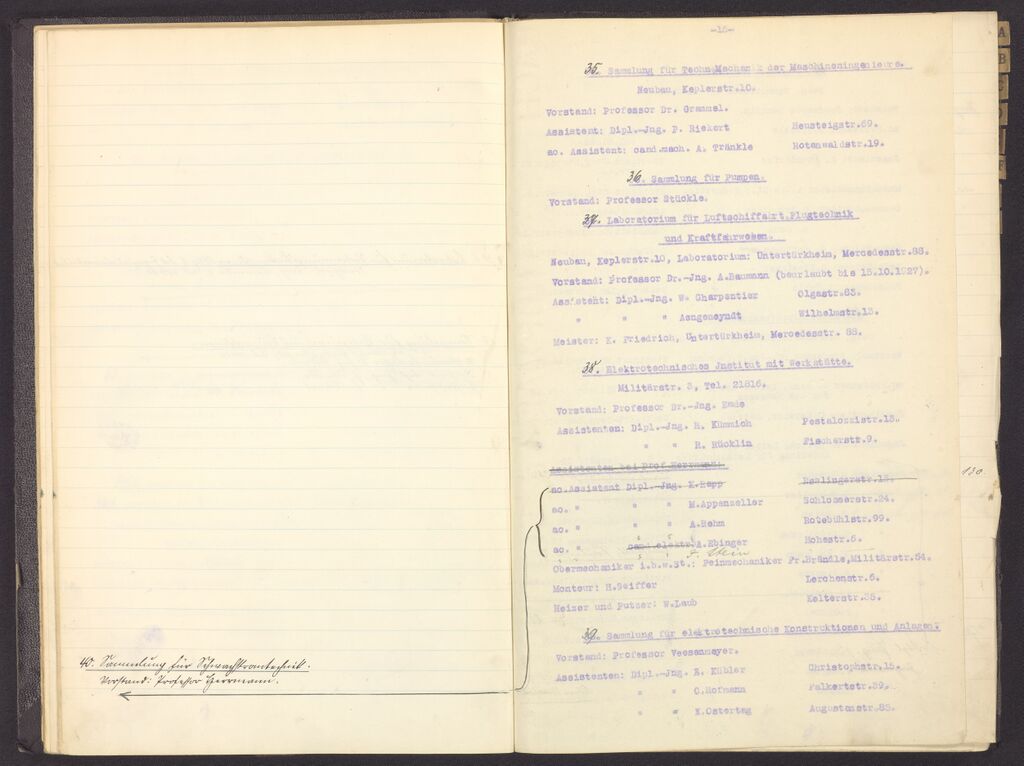 40. Sammlung für Schwachstromtechnik.
Vorstand: Professor Herrmann.
-16-
35. Sammlung für Techn.Mechanik der Maschineningenieure.
Neubau, Keplerstr.10.
Vorstand: Professor Dr. Grammel.
Assistent: Dipl.-Jng. P. Riekert Heusteigstr.69.
ao. Assistent: cand.mach. A. Tränkle Rotenwaldstr.19.
36. Sammlung für Pumpen.
Vorstand: Professor Stückle.
37. Laboratorium für Luftschiffahrt,Flugtechnik
und Kraftfahrwesen.
Neubau, Keplerstr.10, Laboratorium: Untertürkheim, Mercedesstr.88.
Vorstand: Professor Dr.-Jng. A.Baumann (beurlaubt bis 15.10.1927).
Assistent: Dipl.-Jng. W. Charpentier Olgastr.63.
" " " Aengeneyndt Wilhelmstr.13.
Meister: K. Friedrich, Untertürkheim, Mercedesstr. 88.
38. Elektrotechnisches Jnstitut mit Werkstätte.
Militärstr. 3, Tel. 21816.
Vorstand: Professor Dr.-Jng. Emde
Assistenten: Dipl.-Jng. R. Kümmich Pestalozzistr.13.
" " R. Rücklin Fischerstr.9.
Assistenten bei Prof.Herrmann:
ao.Assistent Dipl.-Jng. K.Rapp Esslingerstr.12.
ao. " " " M.Appenzeller Schlosserstr.24.
ao. " " " A.Rehm Rotebühlstr.99.
ao. " cand.elektr.A.Ebinger Hohestr.6.
F. Stein
Obermechaniker i.b.w.St.: Feinmechaniker Fr.Brändle,Militärstr.54.
Monteur: H.Seiffer Lerchenstr.6.
Heizer und Putzer: W.Laub Kelterstr.38.
130.
39. Sammlung für elektrotechnische Konstruktionen und Anlagen.
Vorstand: Professor Veesenmeyer.
Assistenten: Dipl.-Jng. E. Kübler Christophstr.15.
" " O.Hofmann Falkertstr.39.
" " K.Ostertag Augustenstr.88.
A
B
F